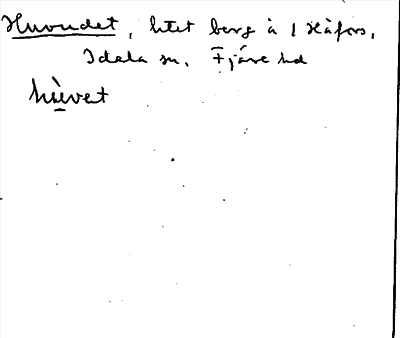 Huvudet, litet berg å 1 Håfors,
Idala sn, Fjäre hd
hùvet